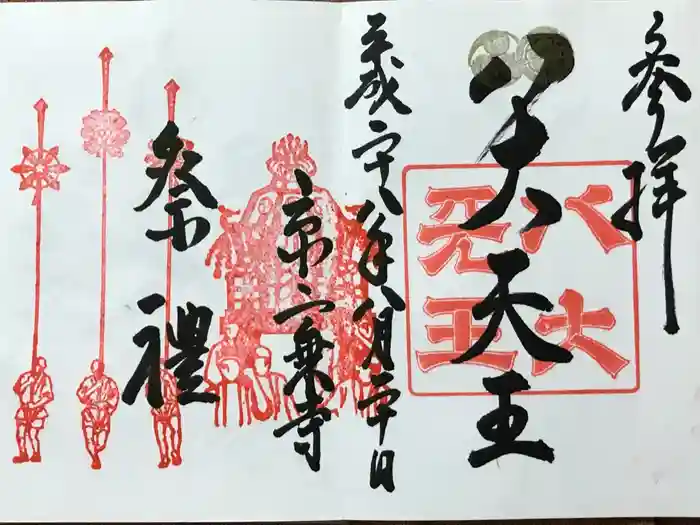 参拝
八大天王
八大
天王
平成二十八年八月二十日
京一乗寺
祭禮